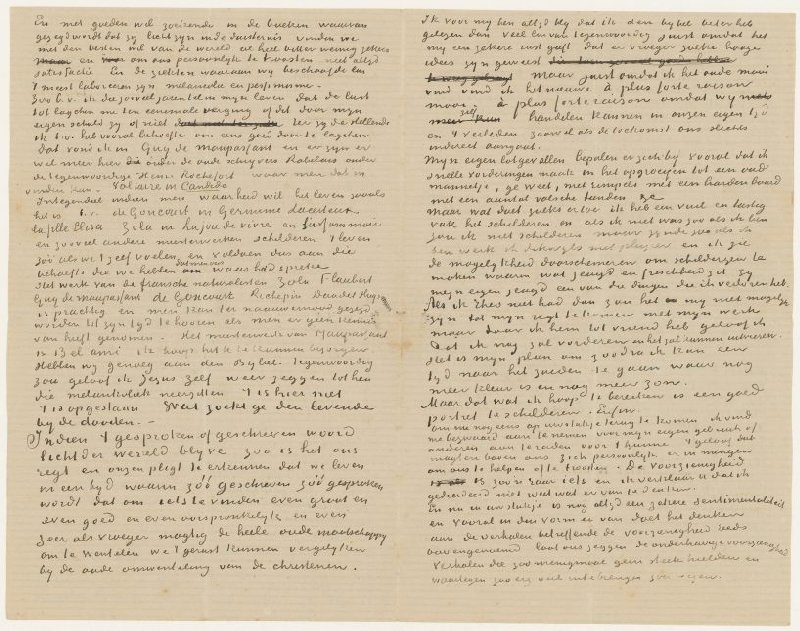 En met goeden wil zoekende in de boeken waarvan
gezegd wordt dat zy licht zyn in de duisternis vinden we
met den besten wil van de wereld al heel bitter weinig zekers
en niet altyd
satisfactie En de ziekten waaraan wy beschaafde en
't meest laboreeren zyn melancholie en pessimisme.
Zoo b.v. ik die zooveel jaren in myn leven dat de lust
tot lagchen me ten eenemale verging of dat door myn
eigen schuld zy of niet
ik b.v. heb vooral behoefte om eens goed door te lagchen.
Dat vond ik in Guy de Maupassant en er zyn er
wel meer hier onder de oude schryvers Rabelais onder
de tegenwoordige Henri Rochefort waar men dat in
vinden kan. Voltaire in Candide
Integendeel indien men waarheid wil het leven zooals
het is b.v. de Goncourt in Germinie Lacerteux
La fille Elisa Zola in la joie de vivre en l'assommoir
en zooveel andere meesterwerken schilderen 't leven
zóó als we 't zelf voelen en voldoen dus aan die
behoefte die we hebben dat men ons waarheid spreke
Het werk van de fransche naturalisten Zola Flaubert
Guy de maupassant de Goncourt Richepin Daudet Huysmans
is prachtig en men kan ter naauwernood gezegd
worden tot zyn tyd te hooren als men er geen kennis
van heeft genomen. Het meesterwerk van Maupassant
is Bel ami ik hoop het U te kunnen bezorgen
Hebben wy genoeg aan den Bybel. tegenwoordig
zou geloof ik Jezus zelf weer zeggen tot hen
die melankoliek neerzitten 't is hier niet
't is opgestaan Wat zoekt ge den levende
by de dooden. -
Indien 't gesproken of geschreven woord
licht der wereld blyve zoo is het ons
regt en onzen pligt te erkennen dat we leven
in een tyd waarin zóó geschreven zóó gesproken
wordt dat om iets te vinden even groot en
even goed en even oorspronkelyk en even
zeer als vroeger magtig de heele oude maatschappy
om te wentelen we 't gerust kunnen vergelyken
by de oude omwenteling van de christenen.
Ik voor my ben altyd bly dat ik den bybel beter heb
gelezen dan veel lui van tegenwoordig juist omdat het
my een zekere rust geeft dat er vroeger zoeke hooge
idees zyn geweest
maar juist omdat ik het oude mooi
vind vind ik het nieuwe à plus forte raison
mooi. à plus forte raison omdat wy
zelf handelen kunnen in onzen eigen tyd
en 't verleden zoowel als de toekomst ons slechts
indirect aangaat.
Myn eigen lotgevallen bepalen er zich by vooral dat ik
snelle vorderingen maak in het opgroeien tot een oud
mannetje, ge weet, met rimpels met een harden baard
met een aantal valsche tanden &c
Maar wat doet zoeks er toe ik heb een vuil en lastig
vak het schilderen en als ik niet was zóó als ik ben
zou ik niet schilderen maar zynde zoo als ik
ben werk ik dikwyls met plezier en ik zie
de mogelykheid doorschemeren om schilderyen te
maken waarin wat jeugd en frischheid zit zy
myn eigen jeugd een van die dingen die ik verloren heb.
Als ik Theo niet had dan zou het my niet mogelyk
zyn tot myn regt te komen met myn werk
maar daar ik hem tot vriend heb geloof ik
dat ik nog zal vorderen en het zal kunnen uitvieren
Het is myn plan om zoodra ik kan een
tyd naar het zuiden te gaan waar nog
meer kleur is en nog meer zon.
Maar dat wat ik hoop te bereiken is een goed
portret te schilderen. - Enfin.
Om nu nog eens op uw stukje terug te komen ik vind
me bezwaard aan te nemen voor myn eigen gebruik of
anderen aan te raden voor 't hunne 't geloof dat
magten boven ons zich persoonlyk er in mengen
om ons te helpen of te troosten. De voorzienigheid
is zoo'n raar iets en ik verklaar u dat ik
gedecideerd niet weet wat er van te denken.
En nu in uw stukje is nog altyd een zekere sentimentaliteit
en vooral in den vorm er van doet het denken
aan de verhalen betreffende de voorzienigheid reeds
bovengenoemd laat ons zeggen de onderhavige voorzienigheid
verhalen die zoo menigmaal geen steek hielden en
waartegen zoo erg veel in te brengen zou wezen.